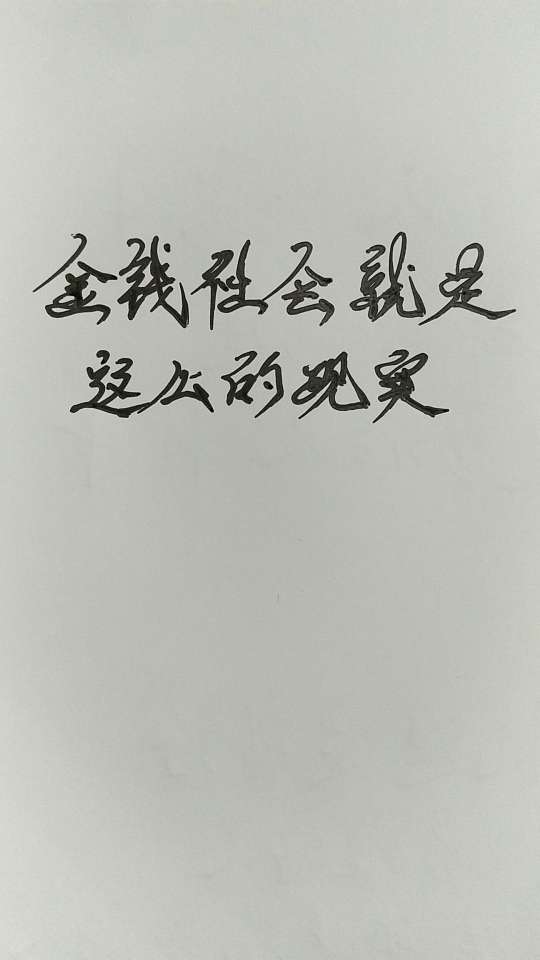 金钱社会就是
这么的现实